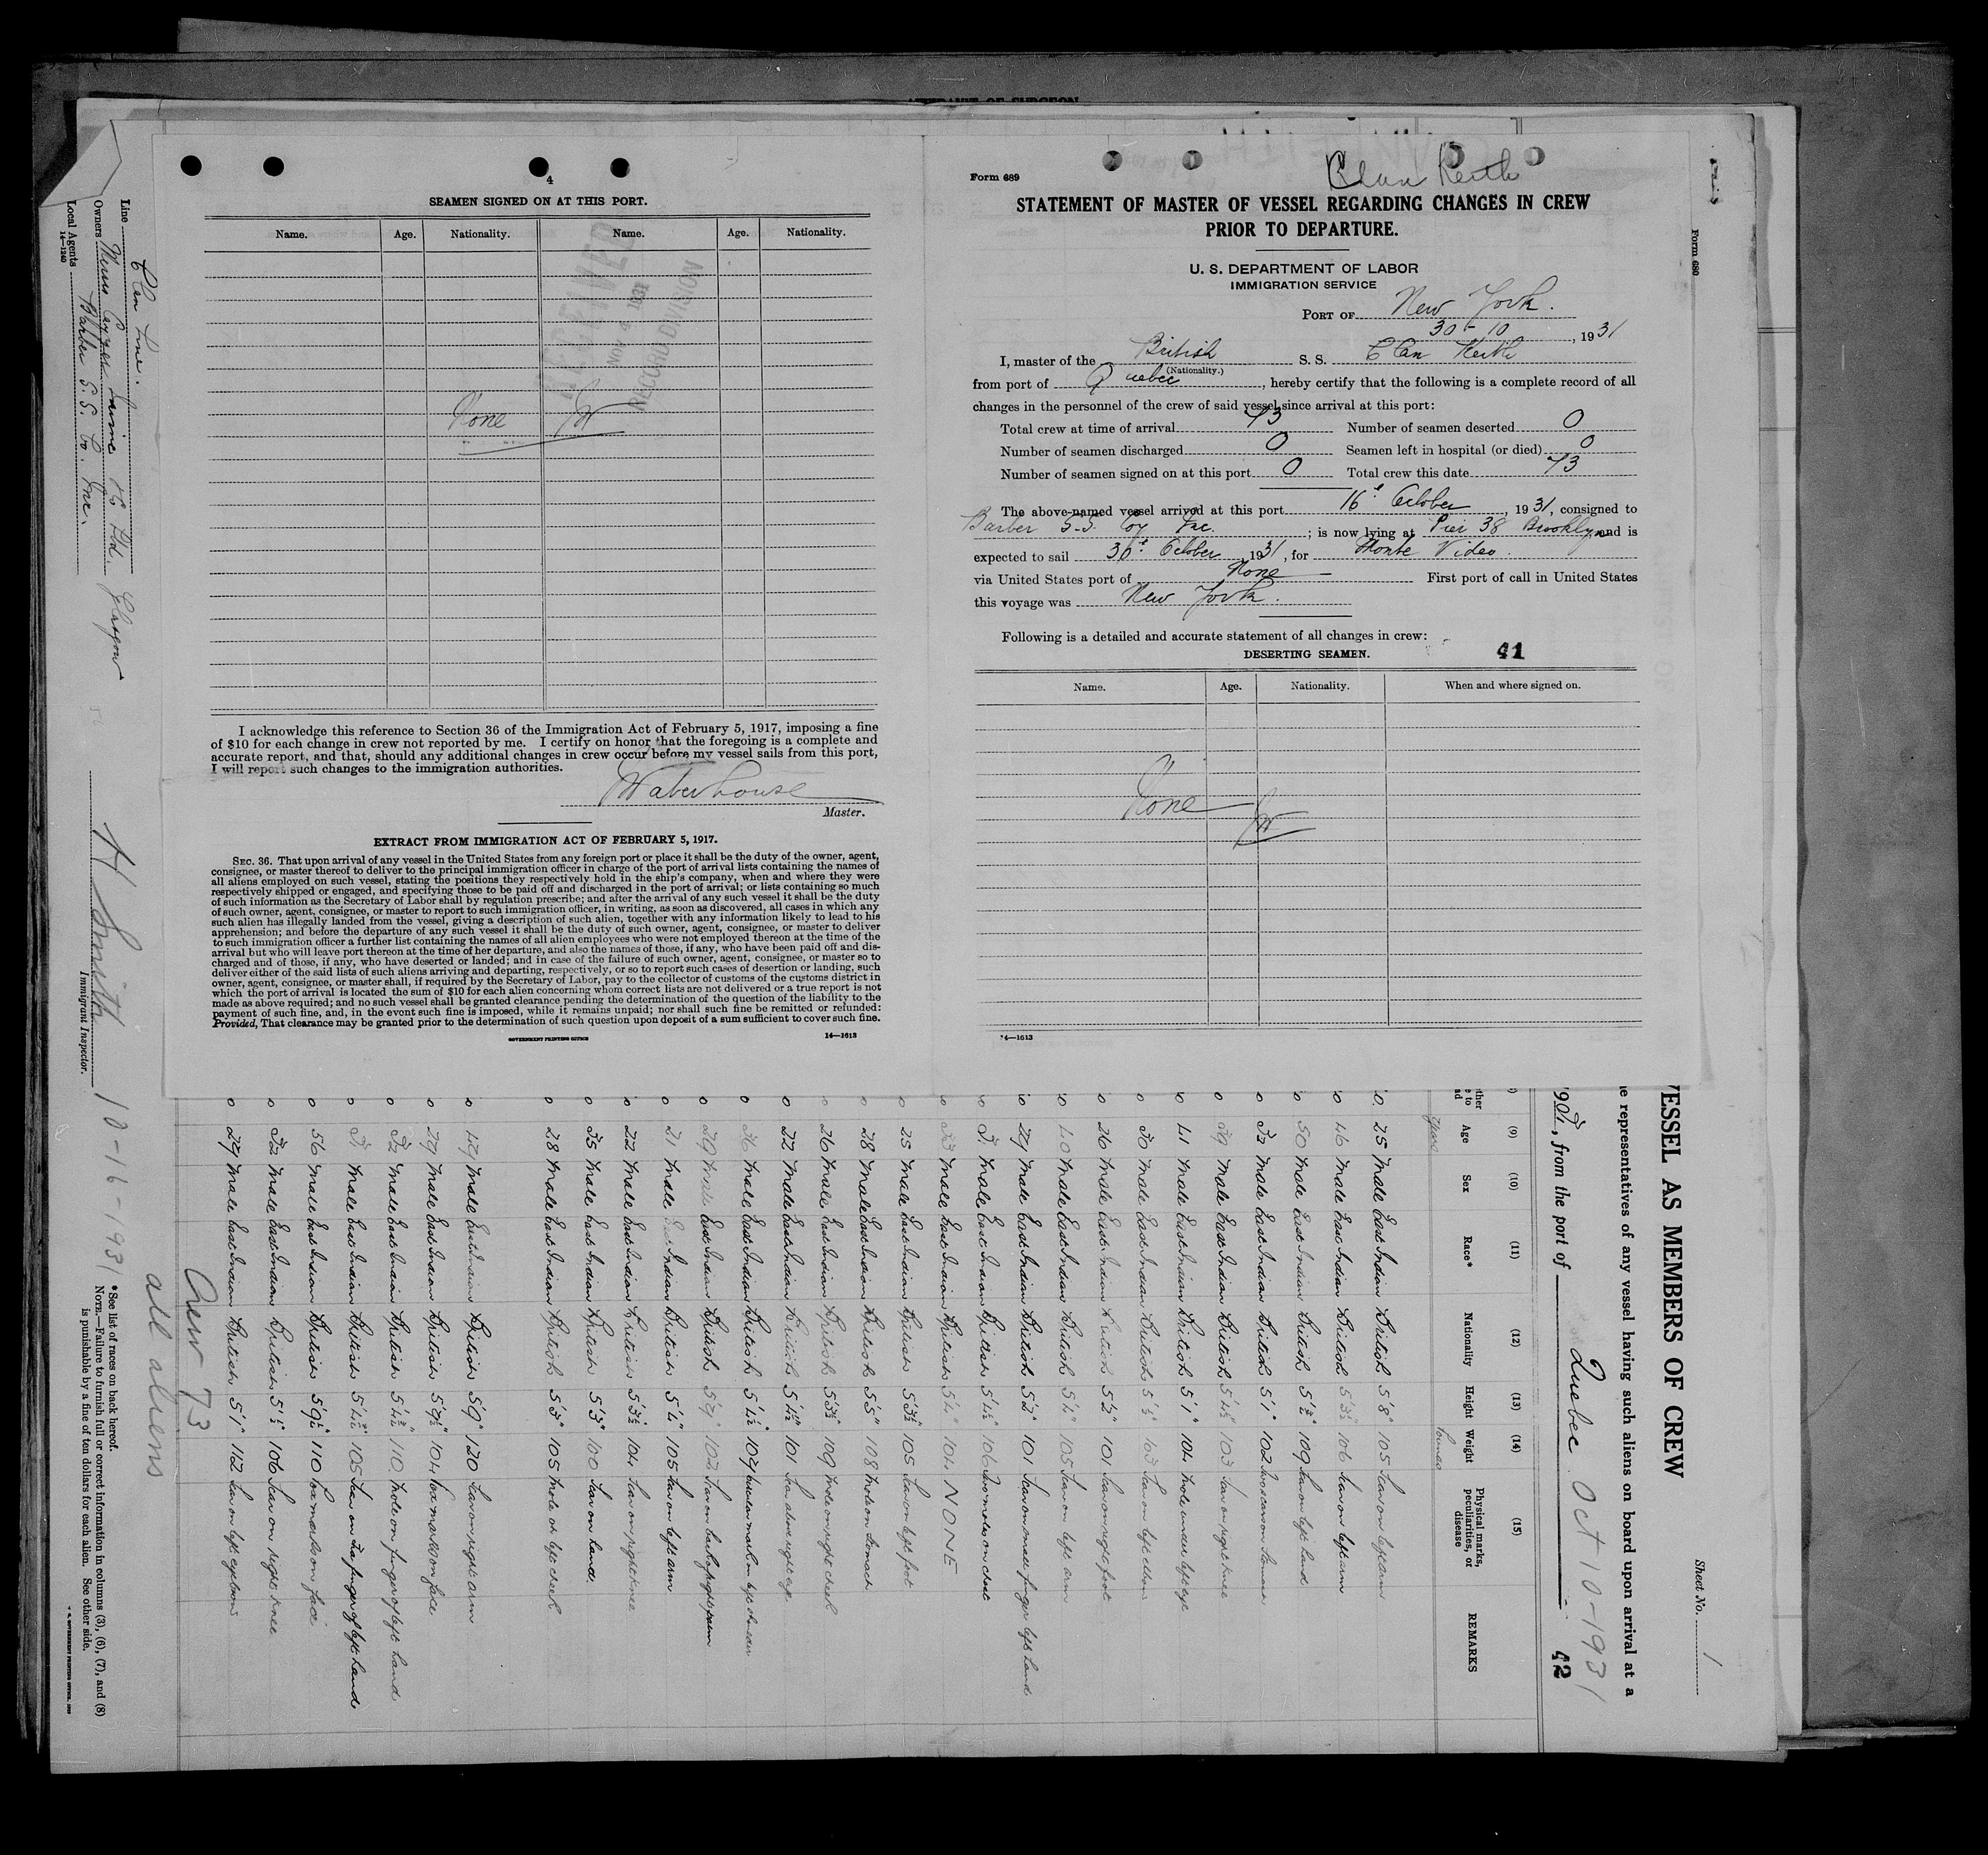 AFFIDAVIT OF SURGEON
4
SEAMEN SIGNED ON AT THIS PORT.
Name. Age. Nationality. Name. Age. Nationality.
RECEIVED
NOV 4 1931
RECORD DIVISION
None W
I acknowledge this reference to Section 36 of the Immigration Act of February 5, 1917, imposing a fine
of $10 for each change in crew not reported by me. I certify on honor that the foregoing is a complete and
accurate report, and that, should any additional changes in crew occur before my vessel sails from this port,
I will report such changes to the immigration authorities.
Waterhouse
Master.
EXTRACT FROM IMMIGRATION ACT OF FEBRUARY 5, 1917.
SEC. 36. That upon arrival of any vessel in the United States from any foreign port or place it shall be the duty of the owner, agent,
consignee, or master thereof to deliver to the principal immigration officer in charge of the port of arrival lists containing the names of
all aliens employed on such vessel, stating the positions they respectively hold in the ship's company, when and where they were
respectively shipped or engaged, and specifying those to be paid off and discharged in the port of arrival; or lists containing so much
of such information as the Secretary of Labor shall by regulation prescribe; and after the arrival of any such vessel it shall be the duty
of such owner, agent, consignee, or master to report to such immigration officer, in writing, as soon as discovered, all cases in which any
such alien has illegally landed from the vessel, giving a description of such alien, together with any information likely to lead to his
apprehension; and before the departure of any such vessel it shall be the duty of such owner, agent, consignee, or master to deliver
to such immigration officer a further list containing the names of all alien employees who were not employed thereon at the time of the
arrival but who will leave port thereon at the time of her departure, and also the names of those, if any, who have been paid off and dis-
charged and of those, if any, who have deserted or landed; and in case of the failure of such owner, agent, consignee, or master so to
deliver either of the said lists of such aliens arriving and departing, respectively, or so to report such cases of desertion or landing, such
owner, agent, consignee, or master shall, if required by the Secretary of Labor, pay to the collector of customs of the customs district in
which the port of arrival is located the sum of $10 for each alien concerning whom correct lists are not delivered or a true report is not
made as above required; and no such vessel shall be granted clearance pending the determination of the question of the liability to the
payment of such fine, and, in the event such fine is imposed, while it remains unpaid; nor shall such fine be remitted or refunded:
Provided, That clearance may be granted prior to the determination of such question upon deposit of a sum sufficient to cover such fine.
GOVERNMENT PRINTING OFFICE 14—1613
Form 689
Clan Keith
STATEMENT OF MASTER OF VESSEL REGARDING CHANGES IN CREW
PRIOR TO DEPARTURE.
U. S. DEPARTMENT OF LABOR
IMMIGRATION SERVICE
PORT OF New York.
30-10, 1931
I, master of the British S. S. Clan Keith
(Nationality.)
from port of Quebec, hereby certify that the following is a complete record of all
changes in the personnel of the crew of said vessel since arrival at this port:
Total crew at time of arrival 73 Number of seamen deserted 0
Number of seamen discharged 0 Seamen left in hospital (or died) 0
Number of seamen signed on at this port 0 Total crew this date 73
The above-named vessel arrived at this port 16t October, 1931, consigned to
Barber S.S. Coy Inc.; is now lying at Pier 38 Brooklyn and is
expected to sail 30t October, 1931, for Monte Video.
via United States port of None First port of call in United States
this voyage was New York.
Following is a detailed and accurate statement of all changes in crew:
DESERTING SEAMEN. 41
Name. Age. Nationality. When and where signed on.
None
W
14—1613
Form 680
VESSEL AS MEMBERS OF CREW
Sheet No. 1
representatives of any vessel having such aliens on board upon arrival at a
, from the port of Quebec Oct 10-1931
42
(9) (10) (11) (12) (13) (14) (15)
Age Sex Race* Nationality Height Weight Physical marks, peculiarities, or disease REMARKS
25 Male East Indian British 5'8" 105 Scar on left arm
46 Male East Indian British 106 Scar on left arm
50 Male East Indian British 109 Scar on left hand
Male East Indian British 5'1" 102
Male East Indian British 103 Scar on right knee
41 Male East Indian British 5'1" 104 Mole under left eye
30 Male East Indian British 103 Scar on left elbow
26 Male East Indian British 5'2" 101 Scar on right foot
40 Male East Indian British 105 Scar on left arm
29 Male East Indian British 5'2" 101 Scar on small finger left hand
Male East Indian British 106 Two moles on chest
Male East Indian British 104 NONE
25 Male East Indian British 105 Scar on left foot
28 Male East Indian British 5'5" 108 Mole on stomach
26 Male East Indian British 109 Mole on right cheek
22 Male East Indian British 101 Scar above right eye
Male East Indian British 107
Male East Indian British 102
21 Male East Indian British 5'4" 105 Scar on left arm
22 Male East Indian British 104 Scar on right knee
35 Male East Indian British 5'3" 100 Scar on hand
28 Male East Indian British 5'3" 105 Mole on left cheek
Male East Indian British 5'9" 120 Scar on right arm
29 Male East Indian British 104 Pox marks on face
32 Male East Indian British 110 Mole on finger of left hand
Male East Indian British 105 Scar on finger of left hand
56 Male East Indian British 110 Pox marks on face
Male East Indian British 106 Scar on right knee
27 Male East Indian British 5'1" 112 Scar on left eyebrow
Crew 73
all aliens
Line Clan Line.
Owners Messrs Cayzer Irvine & Co Ltd. Glasgow
Local Agents Barber S.S. Co. Inc.
14—1240
H Smith 10-16-1931
Immigrant Inspector.
*See list of races on back hereof.
NOTE.—Failure to furnish full or correct information in columns (3), (6), (7), and (8)
is punishable by a fine of ten dollars for each alien. See other side.